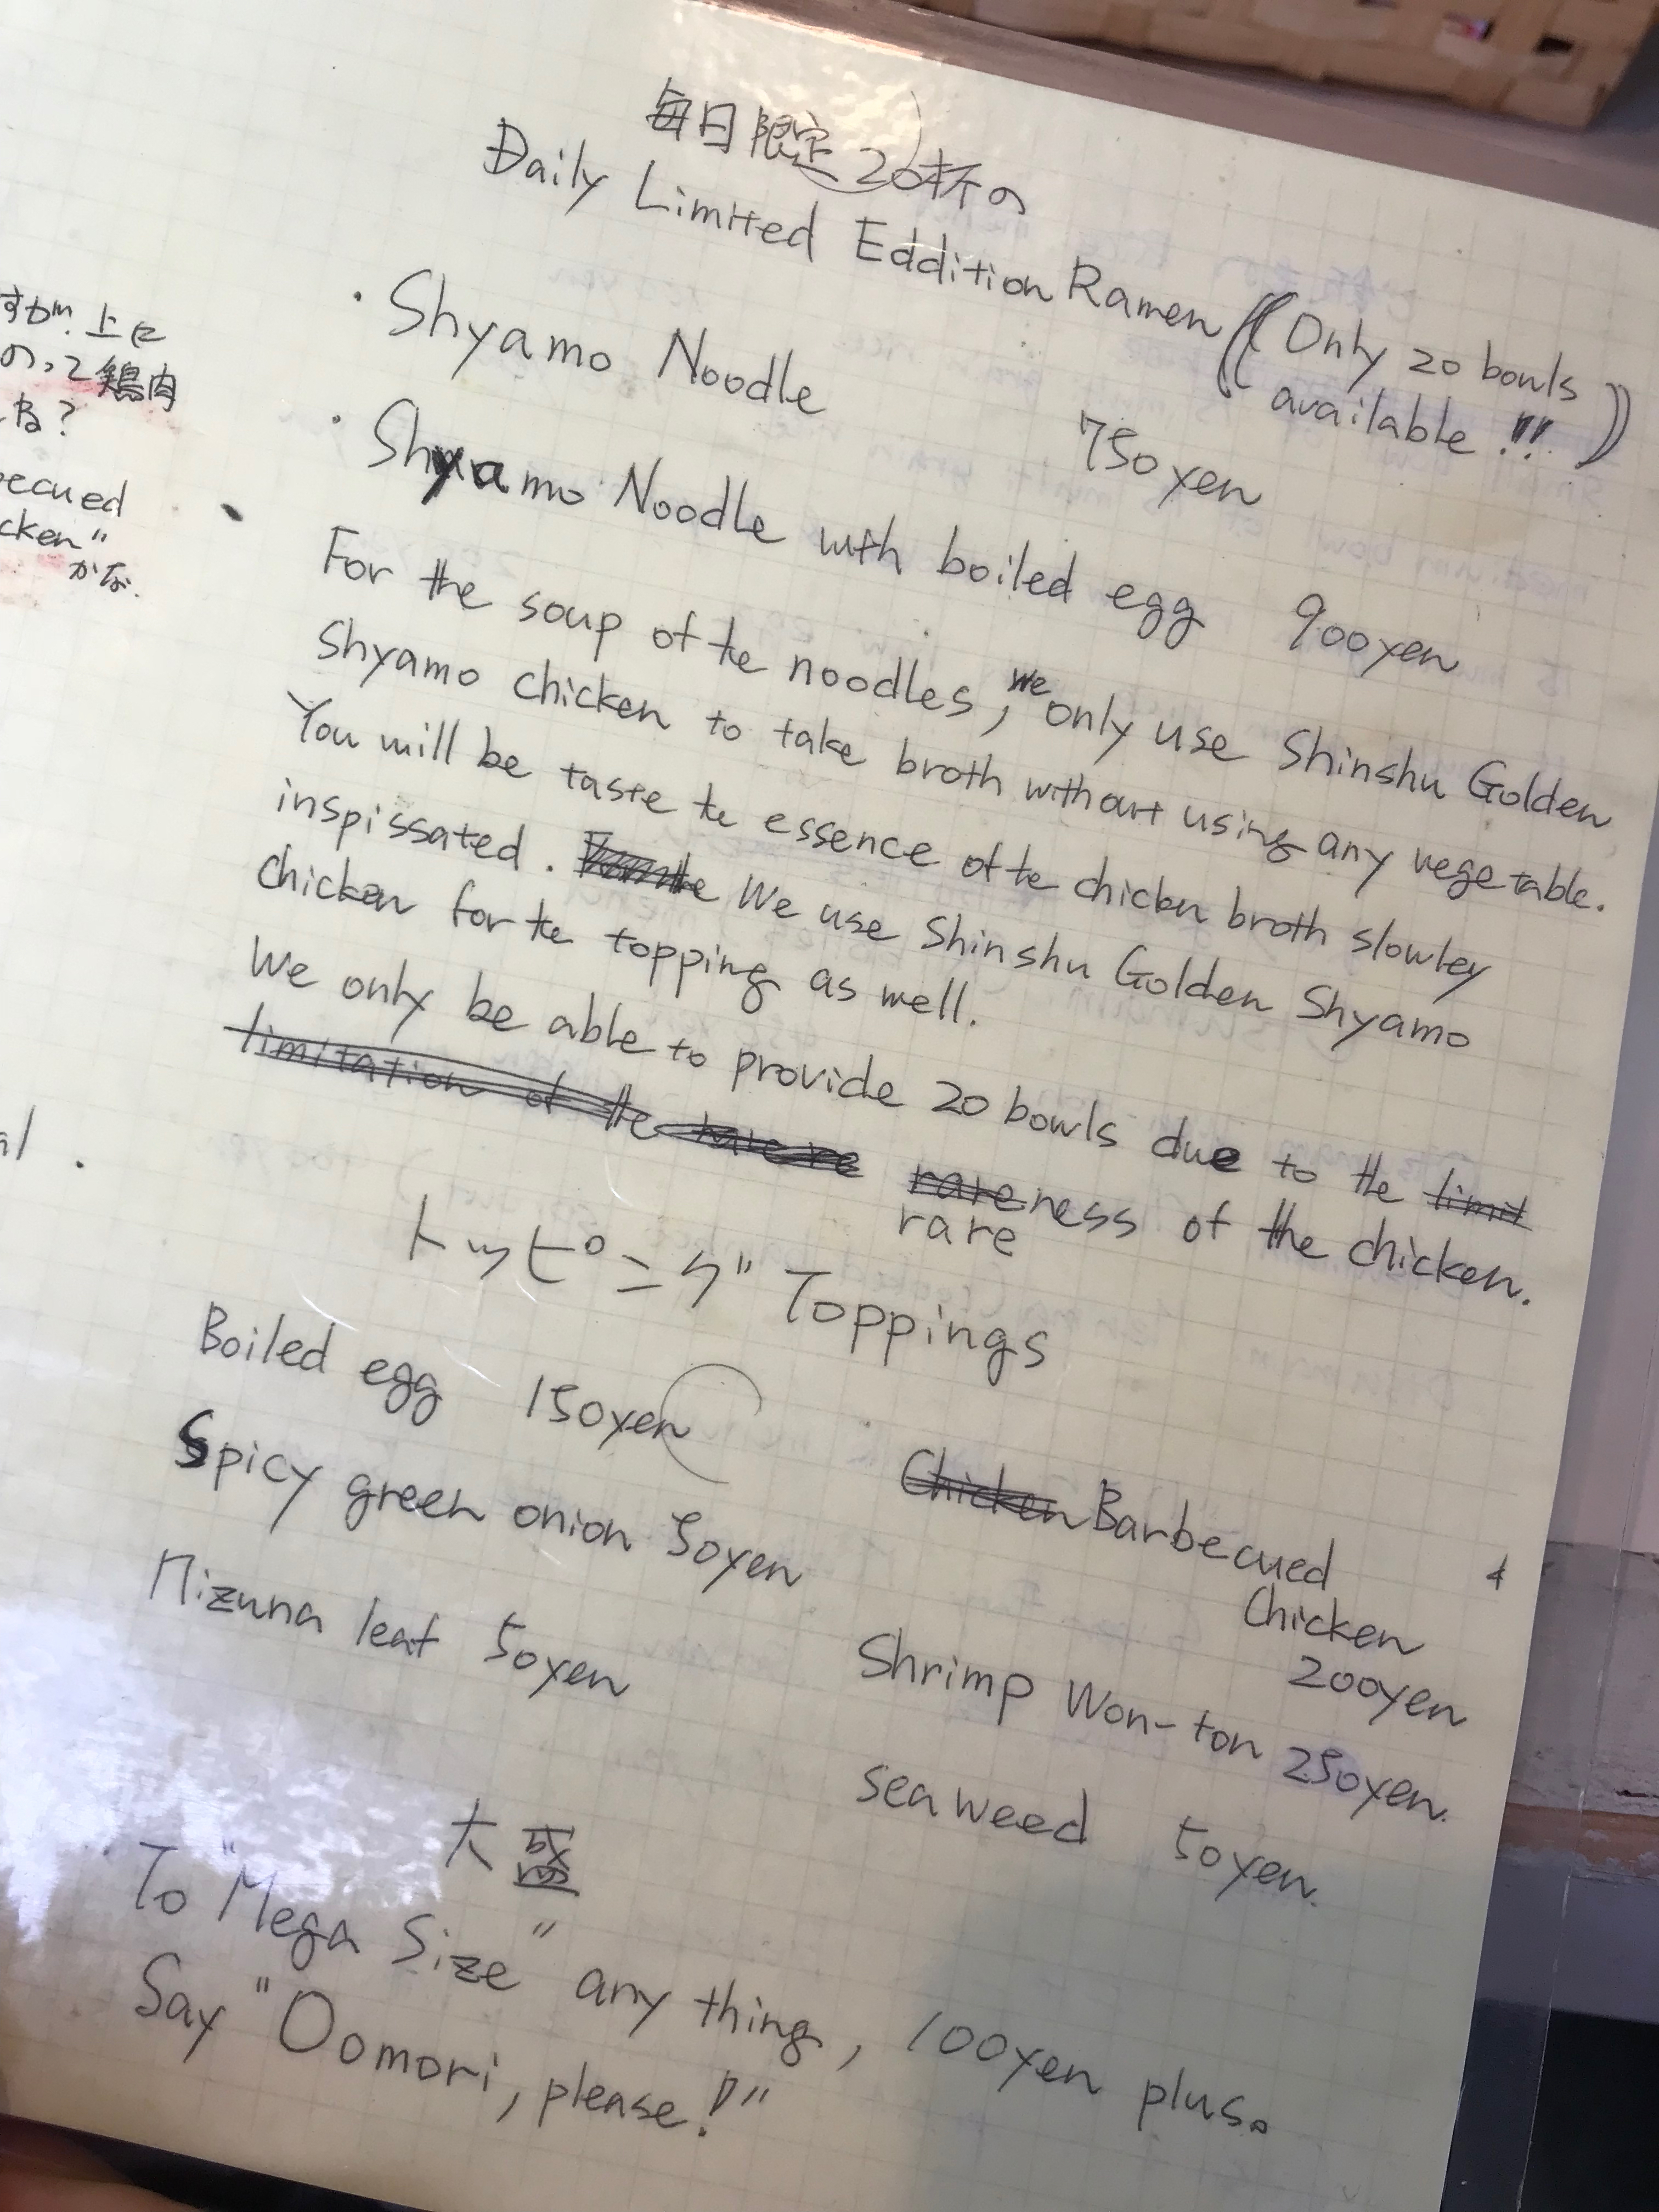 毎日限定20杯の
Daily Limited Eddition Ramen (Only 20 bowls
available!!)
・Shyamo Noodle 750yen
・Shyamo Noodle with boiled egg 900yen
For the soup of the noodles, we only use Shinshu Golden
Shyamo chicken to take broth without using any vegetable.
You will be taste the essence of the chicken broth slowley
inspissated. We use Shinshu Golden Shyamo
chicken for the topping as well.
We only be able to provide 20 bowls due to the limit
limitation of the rareness of the chicken.
rare
トッピング Toppings
Boiled egg 150yen
Chicken Barbecued
Chicken
200yen
Spicy green onion 50yen
Shrimp Won-ton 250yen.
Mizuna leaf 50yen
seaweed 50yen.
大盛
To "Mega Size" any thing, 100yen plus。
Say "Oomori, please!"
すが、上に
のって鶏肉
ね?
ecued
cken"
かな.
al.